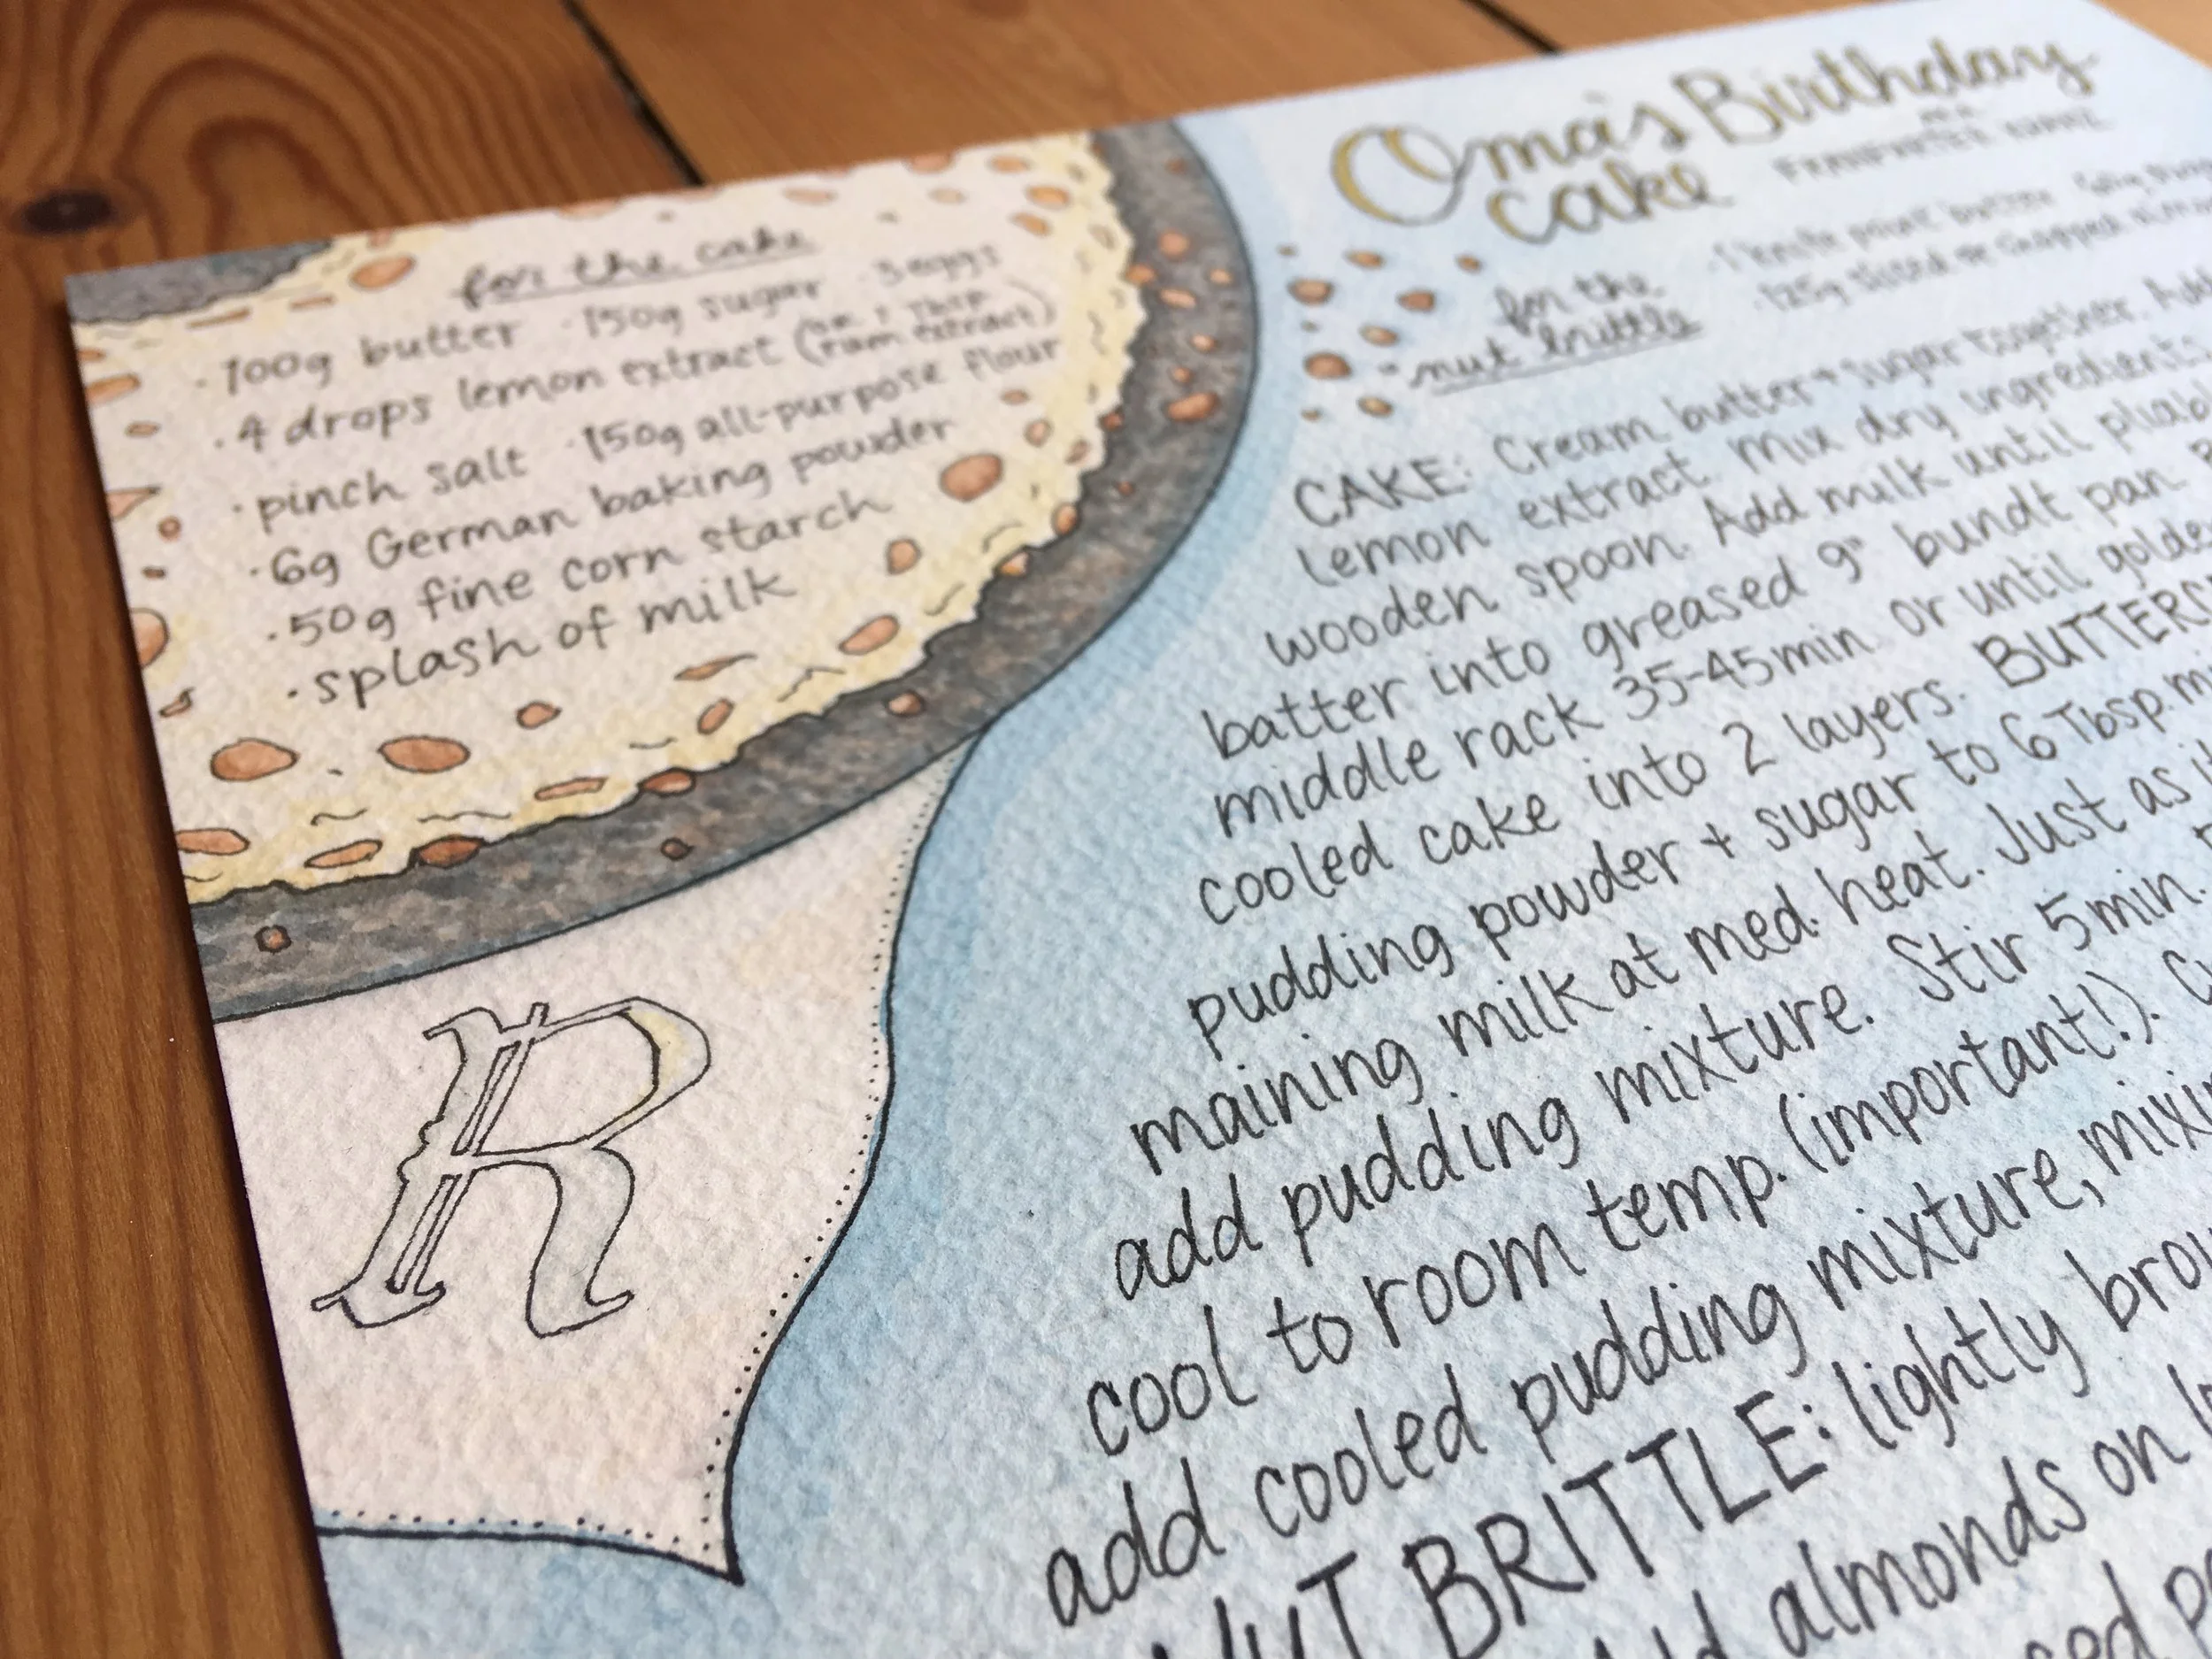 Oma's Birthday
Cake
aka
FRANKFURTER KRANZ
for the cake
·100g butter ·150g sugar ·3 eggs
·4 drops lemon extract (or 1 Tbsp
rum extract)
·pinch salt ·150g all-purpose flour
·6g German baking powder
·50g fine corn starch
·splash of milk
for the
nut brittle
·1 knife point butter
·125g sliced or chopped
CAKE: Cream butter + sugar together. Add
lemon extract. Mix dry ingredients
wooden spoon. Add milk until pliable
batter into greased 9" bundt pan.
middle rack 35-45min or until golden
cooled cake into 2 layers. BUTTERC
pudding powder + sugar to 6 Tbsp. mi
maining milk at med. heat. Just as it
add pudding mixture. Stir 5min.
cool to room temp. (important!).
add cooled pudding mixture, mixin
NUT BRITTLE: lightly brow
almonds on
R